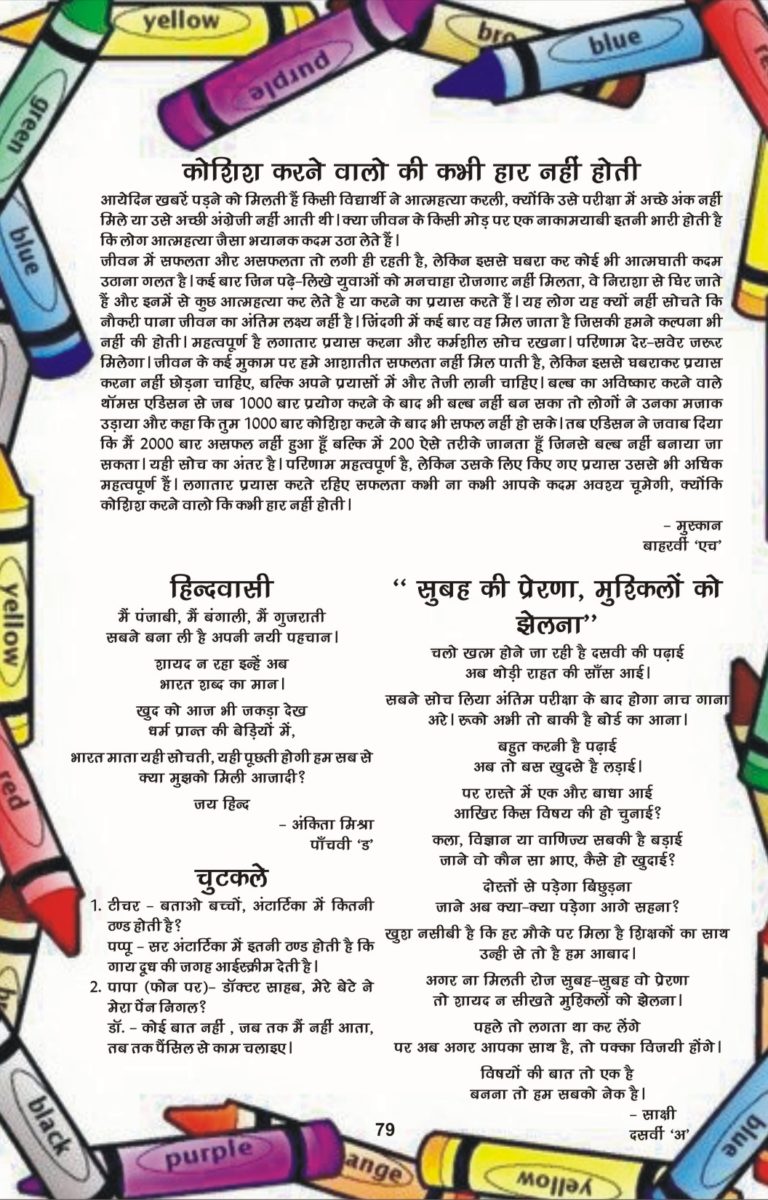 yellow
purple
bro
blue
re
green
blue
yellow
red
br
black
कोशिश करने वालो की कभी हार नहीं होती
आयेदिन खबरें पड़ने को मिलती हैं किसी विद्यार्थी ने आत्महत्या करली, क्योंकि उसे परीक्षा में अच्छे अंक नहीं
मिले या उसे अच्छी अंग्रेजी नहीं आती थी। क्या जीवन के किसी मोड़ पर एक नाकामयाबी इतनी भारी होती है
कि लोग आत्महत्या जैसा भयानक कदम उठा लेते हैं।
जीवन में सफलता और असफलता तो लगी ही रहती है, लेकिन इससे घबरा कर कोई भी आत्मघाती कदम
उठाना गलत है। कई बार जिन पढ़े-लिखे युवाओं को मनचाहा रोजगार नहीं मिलता, वे निराशा से घिर जाते
हैं और इनमें से कुछ आत्महत्या कर लेते है या करने का प्रयास करते हैं। यह लोग यह क्यों नहीं सोचते कि
नौकरी पाना जीवन का अंतिम लक्ष्य नहीं है। जिंदगी में कई बार वह मिल जाता है जिसकी हमने कल्पना भी
नहीं की होती। महत्वपूर्ण है लगातार प्रयास करना और कर्मशील सोच रखना। परिणाम देर-सवेर जरूर
मिलेगा। जीवन के कई मुकाम पर हमे आशातीत सफलता नहीं मिल पाती है, लेकिन इससे घबराकर प्रयास
करना नहीं छोड़ना चाहिए, बल्कि अपने प्रयासों में और तेजी लानी चाहिए। बल्ब का अविष्कार करने वाले
थॉमस एडिसन से जब 1000 बार प्रयोग करने के बाद भी बल्ब नहीं बन सका तो लोगों ने उनका मजाक
उड़ाया और कहा कि तुम 1000 बार कोशिश करने के बाद भी सफल नहीं हो सके। तब एडिसन ने जवाब दिया
कि मैं 2000 बार असफल नहीं हुआ हूँ बल्कि में 200 ऐसे तरीके जानता हूँ जिनसे बल्ब नहीं बनाया जा
सकता। यही सोच का अंतर है। परिणाम महत्वपूर्ण है, लेकिन उसके लिए किए गए प्रयास उससे भी अधिक
महत्वपूर्ण हैं। लगातार प्रयास करते रहिए सफलता कभी ना कभी आपके कदम अवश्य चूमेगी, क्योंकि
कोशिश करने वालो कि कभी हार नहीं होती।
- मुस्कान
बाहरवीं ‘एच’
हिन्दवासी
मैं पंजाबी, मैं बंगाली, मैं गुजराती
सबने बना ली है अपनी नयी पहचान।
शायद न रहा इन्हें अब
भारत शब्द का मान।
खुद को आज भी जकड़ा देख
धर्म प्रान्त की बेड़ियों में,
भारत माता यही सोचती, यही पूछती होगी हम सब से
क्या मुझको मिली आजादी?
जय हिन्द
- अंकिता मिश्रा
पाँचवी ‘ड’
चुटकले
1. टीचर - बताओ बच्चों, अंटार्टिका में कितनी
ठण्ड होती है?
पप्पू - सर अंटार्टिका में इतनी ठण्ड होती है कि
गाय दूध की जगह आईस्क्रीम देती है।
2. पापा (फोन पर)- डॉक्टर साहब, मेरे बेटे ने
मेरा पेंन निगल?
डॉ. - कोई बात नहीं , जब तक मैं नहीं आता,
तब तक पैंसिल से काम चलाइए।
“ सुबह की प्रेरणा, मुश्किलों को
झेलना”
चलो खत्म होने जा रही है दसवी की पढ़ाई
अब थोड़ी राहत की साँस आई।
सबने सोच लिया अंतिम परीक्षा के बाद होगा नाच गाना
अरे। रूको अभी तो बाकी है बोर्ड का आना।
बहुत करनी है पढ़ाई
अब तो बस खुदसे है लड़ाई।
पर रास्ते में एक और बाधा आई
आखिर किस विषय की हो चुनाई?
कला, विज्ञान या वाणिज्य सबकी है बड़ाई
जाने वो कौन सा भाए, कैसे हो खुदाई?
दोस्तों से पड़ेगा बिछुड़ना
जाने अब क्या-क्या पड़ेगा आगे सहना?
खुश नसीबी है कि हर मौके पर मिला है शिक्षकों का साथ
उन्ही से तो है हम आबाद।
अगर ना मिलती रोज सुबह-सुबह वो प्रेरणा
तो शायद न सीखते मुश्किलों को झेलना।
पहले तो लगता था कर लेंगे
पर अब अगर आपका साथ है, तो पक्का विजयी होंगे।
विषयों की बात तो एक है
बनना तो हम सबको नेक है।
- साक्षी
दसवीं ‘अ’
79
purple
ange
yellow
blue